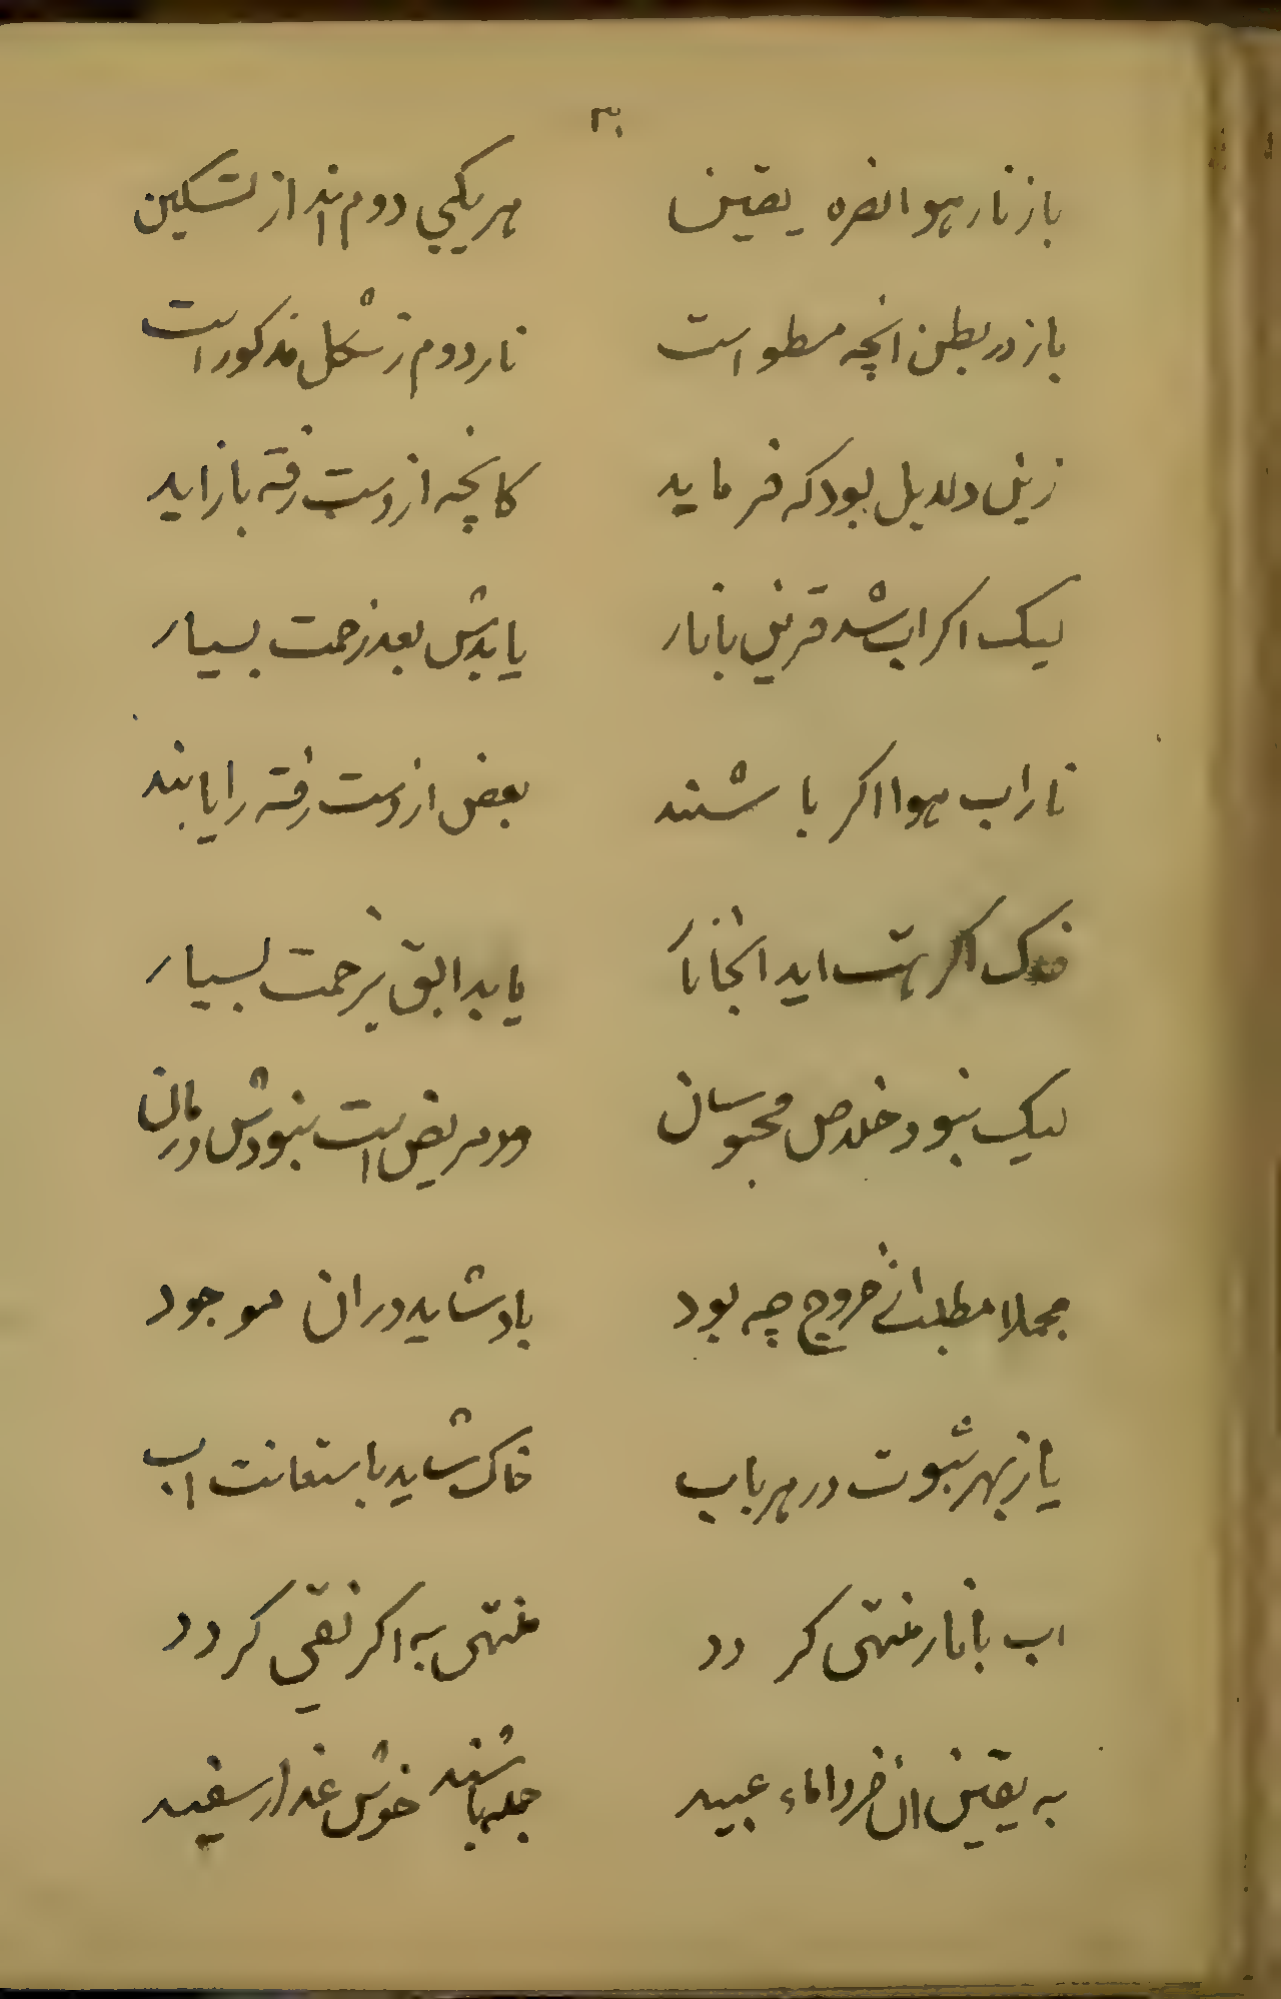 ۳۰
باز نار هوا نصره یقین	هر یکی دوم اند از تسکین
باز در بطن انچه مسطو است	نار دوم ز شکل مذکور است
زین دلایل بود که فرماید	کانچه از دست رفته باز اید
لیک اکر اب شد قرین با نار	یابدش بعد زحمت بسیار
نار اب هوا اکر باشند	بعض از دست رفته را یابند
خاک اکر اید انجا	یابد ابق بزحمت بسیار
لیک نبود خلاص محبوسان	ور مریض است نبودش درمان
مجملا مطلب از خروج چه بود	باد شاید در ان موجود
یا ز بهر ثبوت در هر باب	خاک شاید باستعانت اب
اب با نار منتهی کردد	منتهی به اکر نقی کردد
به یقین ان خرد اماء عبید	جمله باشند خوش عذار سفید